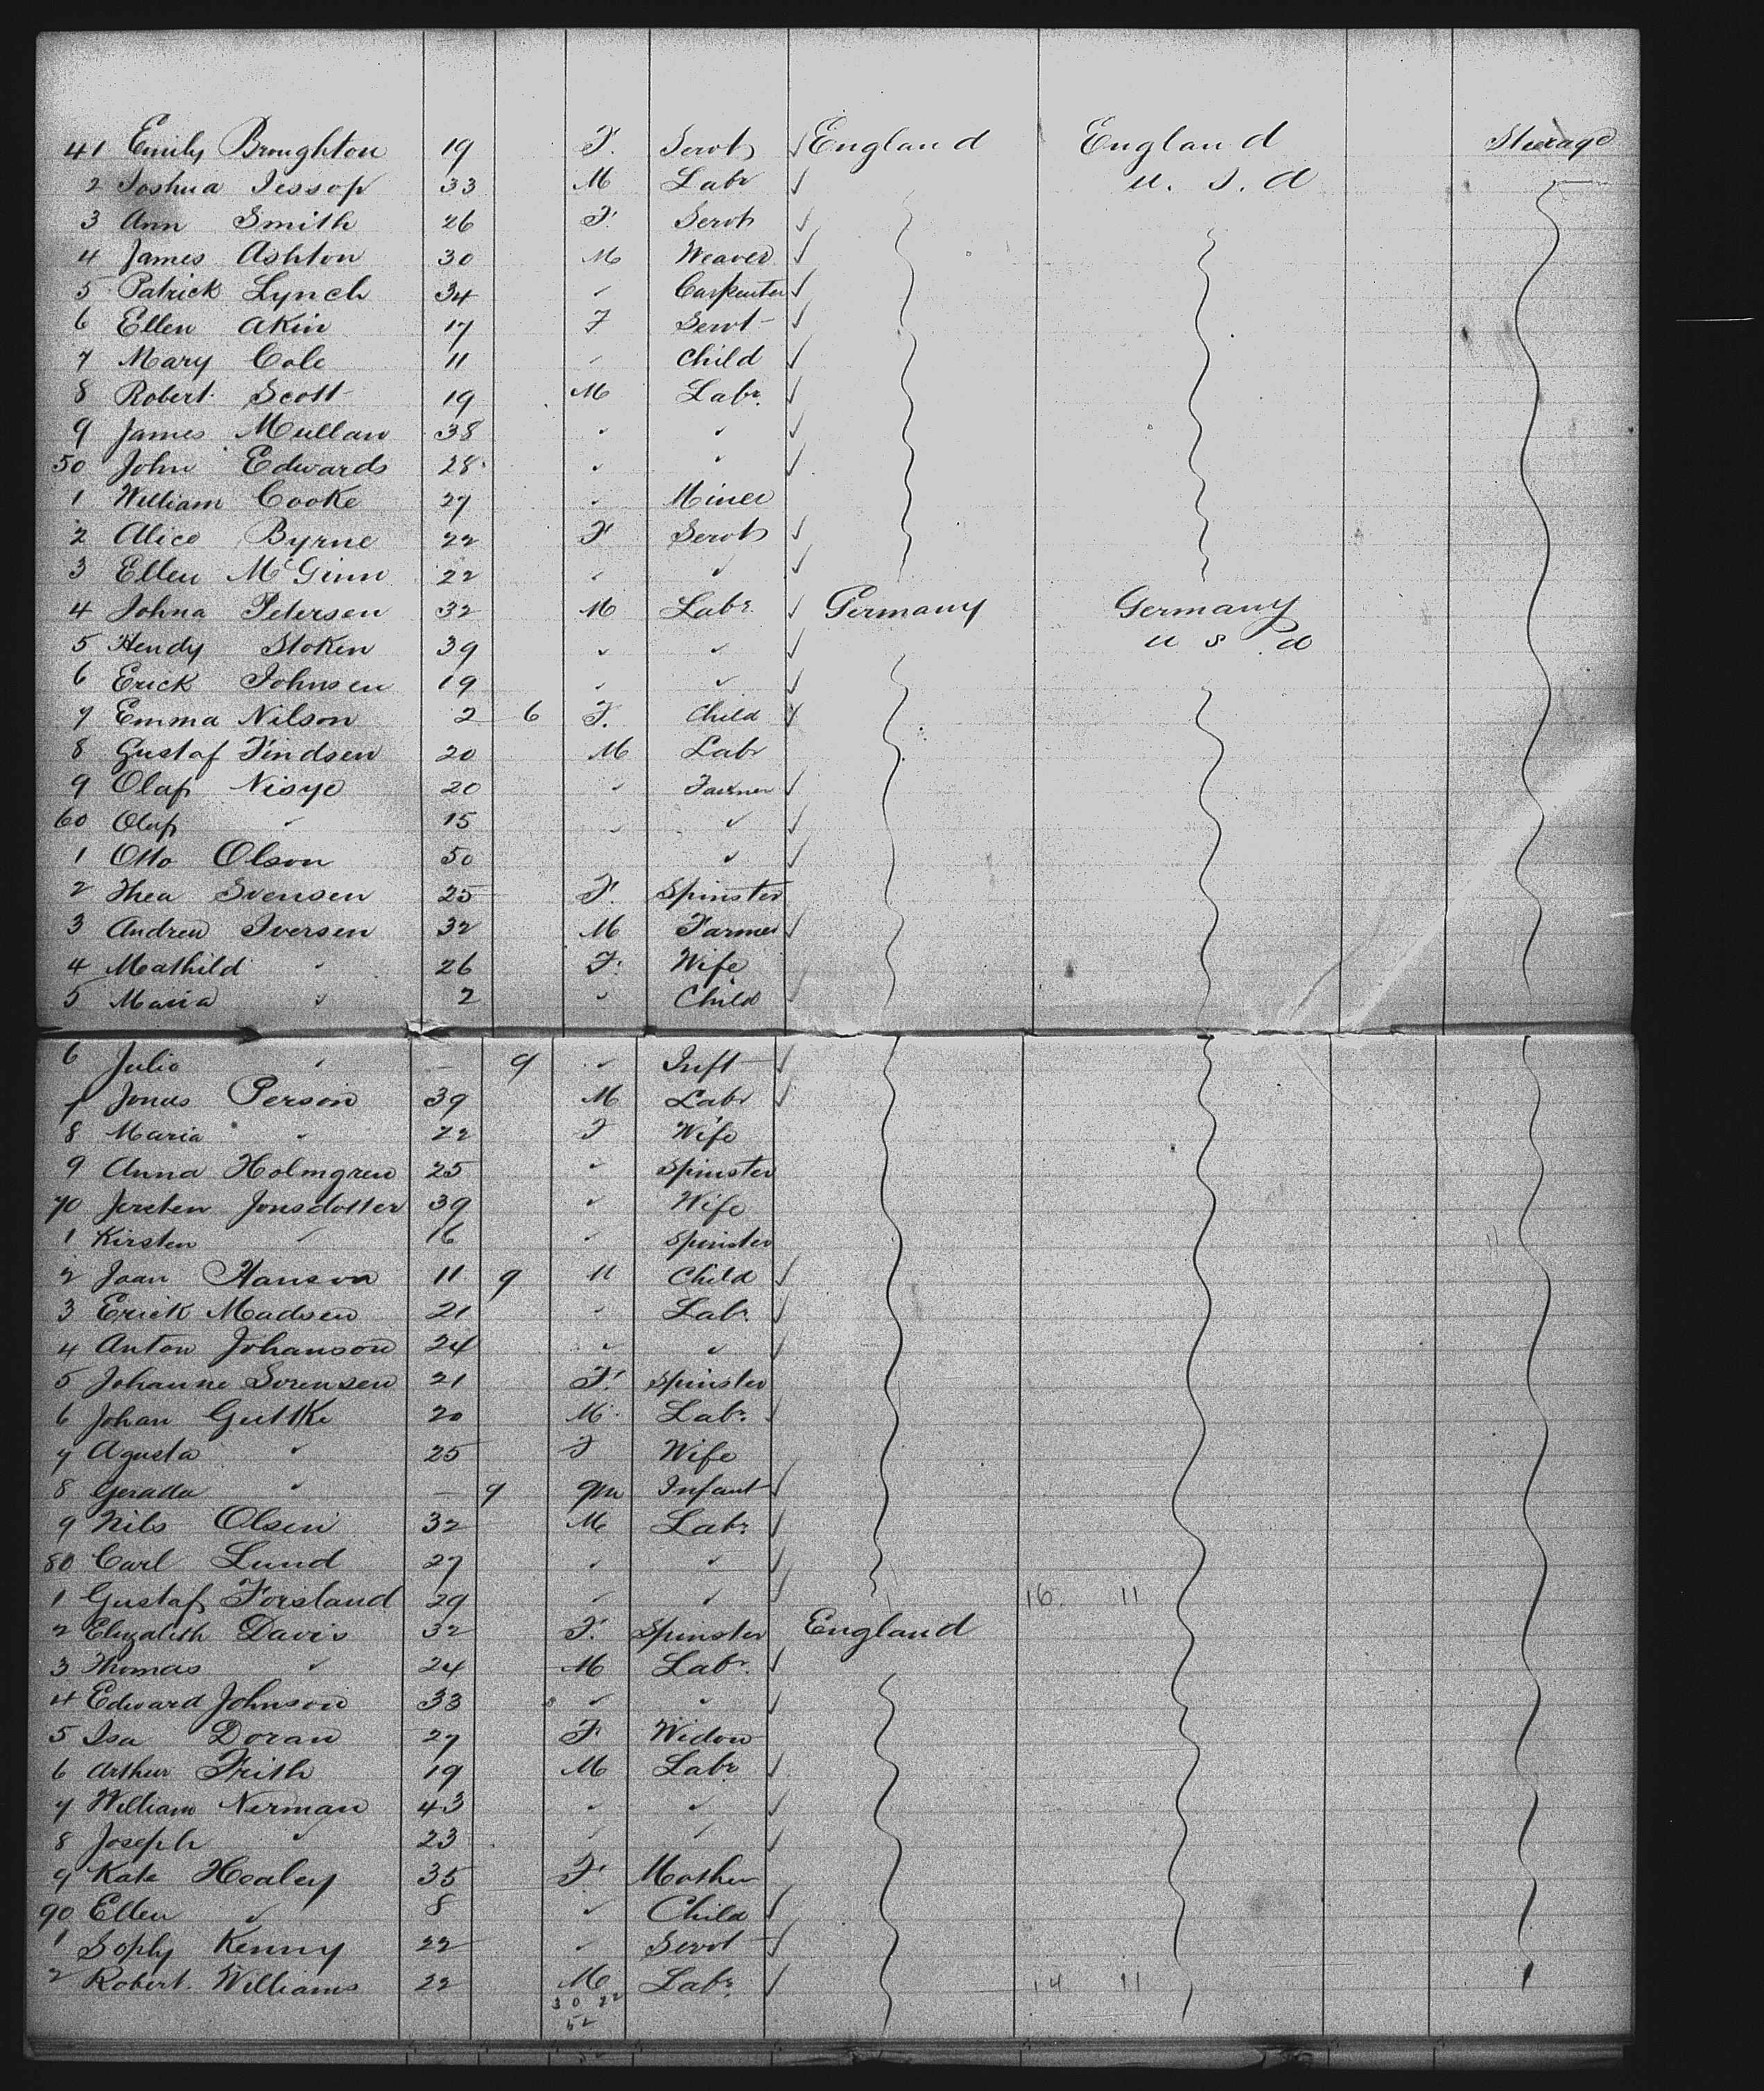 41 Emily Broughton 19 F. Servt ✓ England England Steerage
2 Joshua Jessop 33 M Labr ✓ U. S. A
3 Ann Smith 26 F. Servt ✓
4 James Ashton 30 M Weaver ✓
5 Patrick Lynch 34 " Carpenter ✓
6 Ellen Akin 17 F Servt ✓
7 Mary Cole 11 " Child ✓
8 Robert Scott 19 M Labr. ✓
9 James Mullan 38 " " ✓
50 John Edwards 28 " " ✓
1 William Cooke 27 " Miner
2 Alice Byrne 22 F Servt ✓
3 Ellen McGinn 22 " " ✓
4 Johna Petersen 32 M Labr. ✓ Germany Germany
5 Hendy Stoken 39 " " ✓ U S A
6 Erick Johnsen 19 " " ✓
7 Emma Nilson 2 6 F. Child ✓
8 Gustaf Findsen 20 M Labr
9 Olaf Nisye 20 " Farmer ✓
60 Oluf " 15 " " ✓
1 Otto Olson 50 " ✓
2 Thea Svensen 25 F. Spinster
3 Andrew Iversen 32 M Farmer ✓
4 Mathild " 26 F. Wife
5 Maria " 2 " Child
6 Julie " — 9 " Inft ✓
7 Jonas Person 39 M Labr ✓
8 Maria " 22 F Wife
9 Anna Holmgren 25 " Spinster
70 Jersten Jonsdotter 39 " Wife
1 Kirsten " 16 " Spinster 11
2 Joan Hanson 11 9 M Child ✓
3 Erick Madsen 21 " Labr. ✓
4 Anton Johanson 24 " " ✓
5 Johanne Sorensen 21 F. Spinster
6 Johan Guttke 20 M. Labr. ✓
7 Agusta " 25 F Wife
8 Gerada " — 9 9m Infant ✓
9 Nils Olsen 32 M Labr. ✓
80 Carl Lund 27 " " ✓
1 Gustaf Forsland 29 " " ✓ 16. 11
2 Elizabeth Davis 32 F. Spinster England
3 Thomas " 24 M Labr. ✓
4 Edward Johnson 33 " " ✓
5 Isa Doran 27 F Widow
6 Arthur Frith 19 M Labr ✓
7 William Nerman 43 " " ✓
8 Joseph " 23 " " ✓
9 Kate Healey 35 F Mother
90 Ellen " 8 " Child ✓
1 Sophy Kenny 22 " Servt ✓
2 Robert Williams 22 M Labr. ✓ 14 11
30 22
52